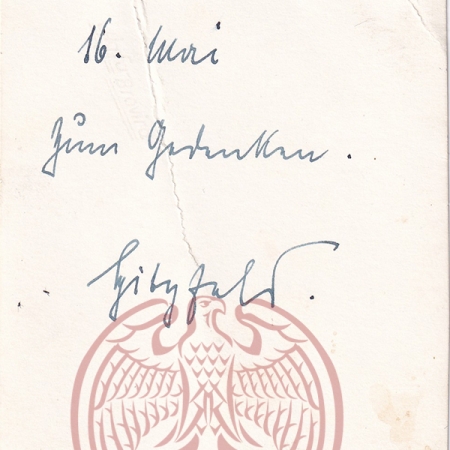 16. Mai
Zum Gedenken.
Hitzfeld.